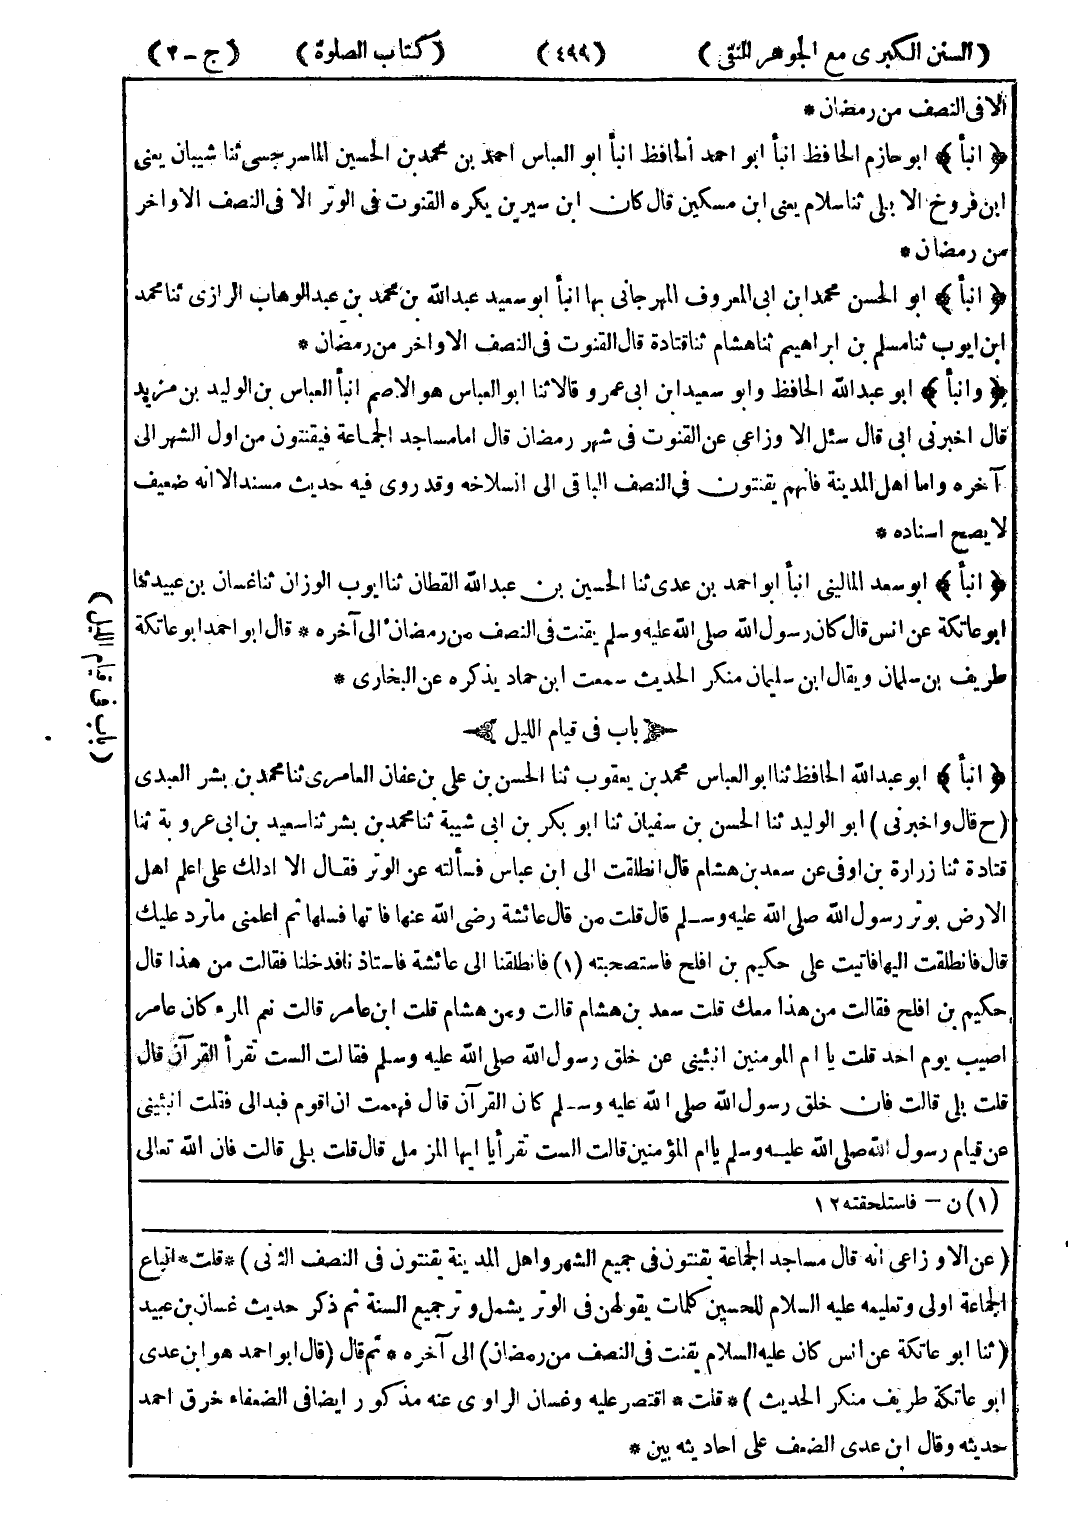 (السنن الكبرى مع الجوهر النقى) (٤٩٩) (كتاب الصلوة) (ج-٢)
الا فى النصف من رمضان *
﴿ انبأ ﴾ ابو حازم الحافظ انبأ ابو احمد الحافظ انبأ ابو العباس احمد بن محمد بن الحسين الماسرجسى ثنا شيبان يعنى
ابن فروخ الا بلى ثنا سلام يعنى ابن مسكين قال كان ابن سيرين يكره القنوت فى الوتر الا فى النصف الاواخر
من رمضان *
﴿ انبأ ﴾ ابو الحسن محمد ابن ابى المعروف المهرجانى بها انبأ ابو سعيد عبدالله بن محمد بن عبدالوهاب الرازى ثنا محمد
ابن ايوب ثنا مسلم بن ابراهيم ثنا هشام ثنا قتادة قال القنوت فى النصف الاواخر من رمضان *
﴿ وانبأ ﴾ ابو عبدالله الحافظ وابو سعيد ابن ابى عمرو قالا ثنا ابو العباس هو الاصم انبأ العباس بن الوليد بن مزيد
قال اخبرنى ابى قال سئل الا وزاعى عن القنوت فى شهر رمضان قال اما مساجد الجماعة فيقنتون من اول الشهر الى
آخره واما اهل المدينة فانهم يقنتون فى النصف الباقى الى انسلاخه وقد روى فيه حديث مسند الا انه ضعيف
لا يصح اسناده *
﴿ انبأ ﴾ ابو سعد المالينى انبأ ابو احمد بن عدى ثنا الحسين بن عبدالله القطان ثنا ايوب الوزان ثنا غسان بن عبيد ثنا
ابو عاتكة عن انس قال كان رسول الله صلى الله عليه وسلم يقنت فى النصف من رمضان الى آخره * قال ابو احمد ابو عاتكة
طريف بن سلمان ويقال ابن سليمان منكر الحديث سمعت ابن حماد يذكره عن البخارى *
باب فى قيام الليل
(باب فى قيام الليل)
﴿ انبأ ﴾ ابو عبدالله الحافظ ثنا ابو العباس محمد بن يعقوب ثنا الحسن بن على بن عفان العامرى ثنا محمد بن بشر العبدى
(ح قال واخبرنى) ابو الوليد ثنا الحسن بن سفيان ثنا ابو بكر بن ابى شيبة ثنا محمد بن بشر ثنا سعيد بن ابى عروبة ثنا
قتادة ثنا زرارة بن اوفى عن سعد بن هشام قال انطلقت الى ابن عباس فسألته عن الوتر فقال الا ادلك على اعلم اهل
الارض بوتر رسول الله صلى الله عليه وسلم قال قلت من قال عائشة رضى الله عنها فاتها فسلها ثم اعلمنى ماترد عليك
قال فانطلقت اليها فاتيت على حكيم بن افلح فاستصحبته (١) فانطلقنا الى عائشة فاستاذنا فدخلنا فقالت من هذا قال
حكيم بن افلح فقالت من هذا معك قلت سعد بن هشام قالت ومن هشام قلت ابن عامر قالت نعم المرء كان عامر
اصيب يوم احد قلت يا ام المومنين انبئينى عن خلق رسول الله صلى الله عليه وسلم فقالت الست تقرأ القرآن قال
قلت بلى قالت فان خلق رسول الله صلى الله عليه وسلم كان القرآن قال فهممت ان اقوم فبدا لى فقلت انبئينى
عن قيام رسول الله صلى الله عليه وسلم ياام المؤمنين قالت الست تقرأ يا ايها المزمل قال قلت بلى قالت فان الله تعالى
(١) ن - فاستلحقته ١٢
(عن الاوزاعى انه قال مساجد الجماعة يقنتون فى جميع الشهر واهل المدينة يقنتون فى النصف الثانى) * قلت * اتباع
الجماعة اولى وتعليمه عليه السلام للحسين كلمات يقولهن فى الوتر يشمل وتر جميع السنة ثم ذكر حديث غسان بن عبيد
(ثنا ابو عاتكة عن انس كان عليه السلام يقنت فى النصف من رمضان) الى آخره * ثم قال (قال ابو احمد هو ابن عدى
ابو عاتكة طريف منكر الحديث) * قلت * اقتصر عليه وغسان الراوى عنه مذكور ايضا فى الضعفاء خرق احمد
حديثه وقال ابن عدى الضعف على احاديثه بين *